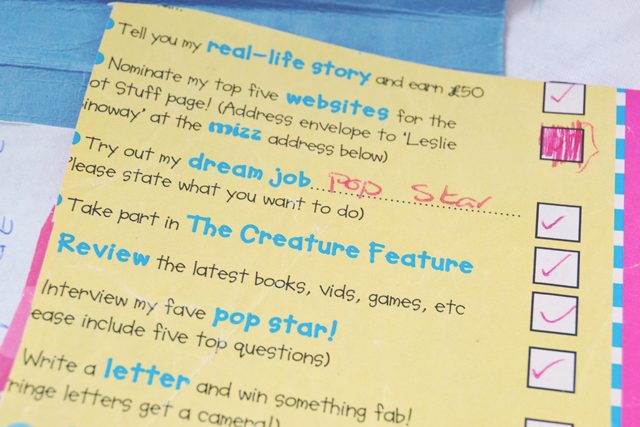 Tell you my real-life story and earn £50
Nominate my top five websites for the
ot Stuff page! (Address envelope to 'Leslie
inoway' at the mizz address below)
Try out my dream job...pop star
lease state what you want to do)
Take part in The Creature Feature
Review the latest books, vids, games, etc
Interview my fave pop star!
ease include five top questions)
Write a letter and win something fab!
ringe letters get a camera!)